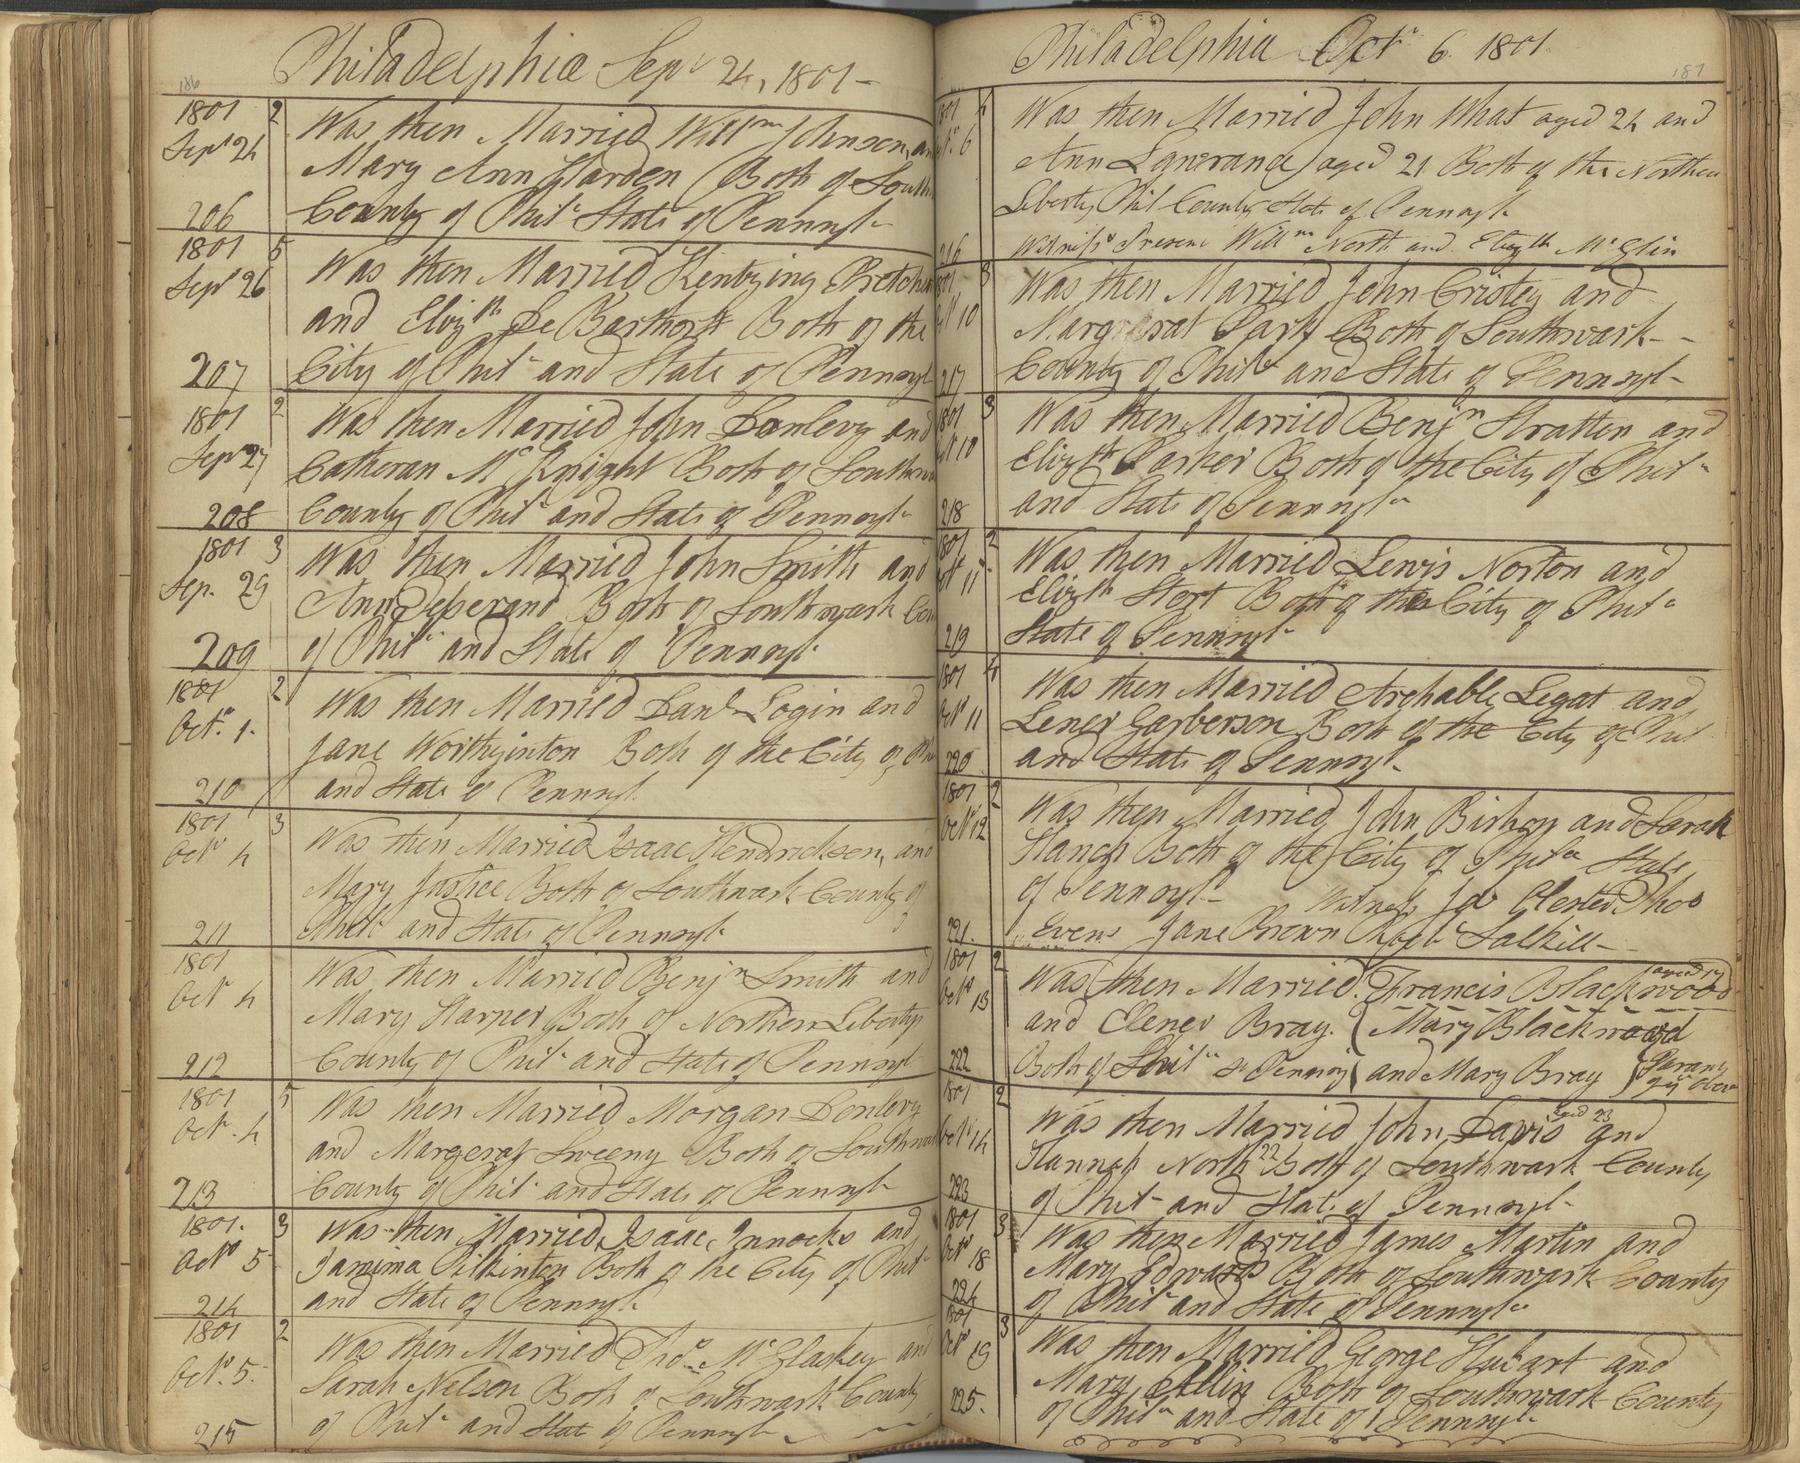 186
Philadelphia Sepr 24, 1801-
1801 2
Sepr 24
206
Was then Married Willm Johnson, an
Mary Ann Harden Both of South
County of Phila State of Pennsyla
1801 5
Sepr 26
207
Was then Married
and Elizth De Berthost Both of the
City of Phila and State of Pennsyl
1801 2
Sepr 27
208
Was then Married John Donlevy and
Catheran Mc Knight Both of Southw
County of Phila and State of Pennsyla
1801 3
Sep. 29
209
Was then Married John Smith and
Ann Both of Southwark Cou
of Phila and State of Pennsyla
1801 2
Octr 1.
210
Was then Married Danl Login and
Jane Worthginton Both of the City of Ph
and State of Pennsyl.
1801 3
Octr 4
211
Was then Married Isaac Hendrickson, and
Mary Justice Both of Southwark County of
Phila and State of Pennsyla
1801
Octr 4
212
Was then Married Benjn Smith and
Mary Harper Both of Northern Libertys
County of Phila and State of Pennsyl
1801 5
Octr. 4
213
Was then Married Morgan Donlevy
and Margerat Sweeny Both of Southwa
County of Phila and State of Pennsyla
1801. 3
Octr 5
214
Was then Married Isaac Innocks and
Jamima Pilkinton Both of the City of Phila
and State of Pennsyla
1801 2
Octr. 5.
215
Was then Married Thos Mc Glaskey and
Sarah Nelson Both of Southwark County
of Phila and State of Pennsyla
187
Philadelphia Octr 6 1801.
1801 4
6
216
Was then Married John What aged 24 and
Ann aged 21 Both of the Northen
Liberty Phil County State of Pennsyla
Witness Present Willm North and Elizth Mc Glin
1801 3
10
217
Was then Married John Cristey and
Margerat Both of Southwark--
County of Phila and State of Pennsyl-
1801 3
10
218
Was then Married Benjn Stratten and
Elizth Parker Both of the City of Phila
and State of Pennsyla
1801 2
Octr 11
219
Was then Married Lewis Norton and
Elizth Stort Both of the City of Phila
State of Pennsyla
1801 4
Octr 11
220
Was then Married Archable Legat and
Lener Garberson Both of the City of Phil
and State of Pennsyl.
1801 2
Octr 12
221.
Was then Married John Bishop and Sarah
Both of the City of Phila State
of Pennsyla- Witness Thos
Evens Jane Brown Robt Salkill-
1801 2
Octr 13
222
Was then Married. Francis Blackwood aged 17
and Elener Bray. { Mary Blackwood
Both of Phila S. Pennsy { and Mary Bray }
1801 2
Octr 14
223
Was then Married John Davis aged 23 and
Hannah North 22 Both of Southwark County
of Phila and State of Pennsyl-
1801 3
Octr 18
224
Was then Married James Martin and
Mary Edwards Both of Southwark County
of Phila and State of Pennsyla
1801 3
Octr 19
225.
Was then Married George Hubart and
Mary Allin Both of Southwark County
of Phila and State of Pennsyla